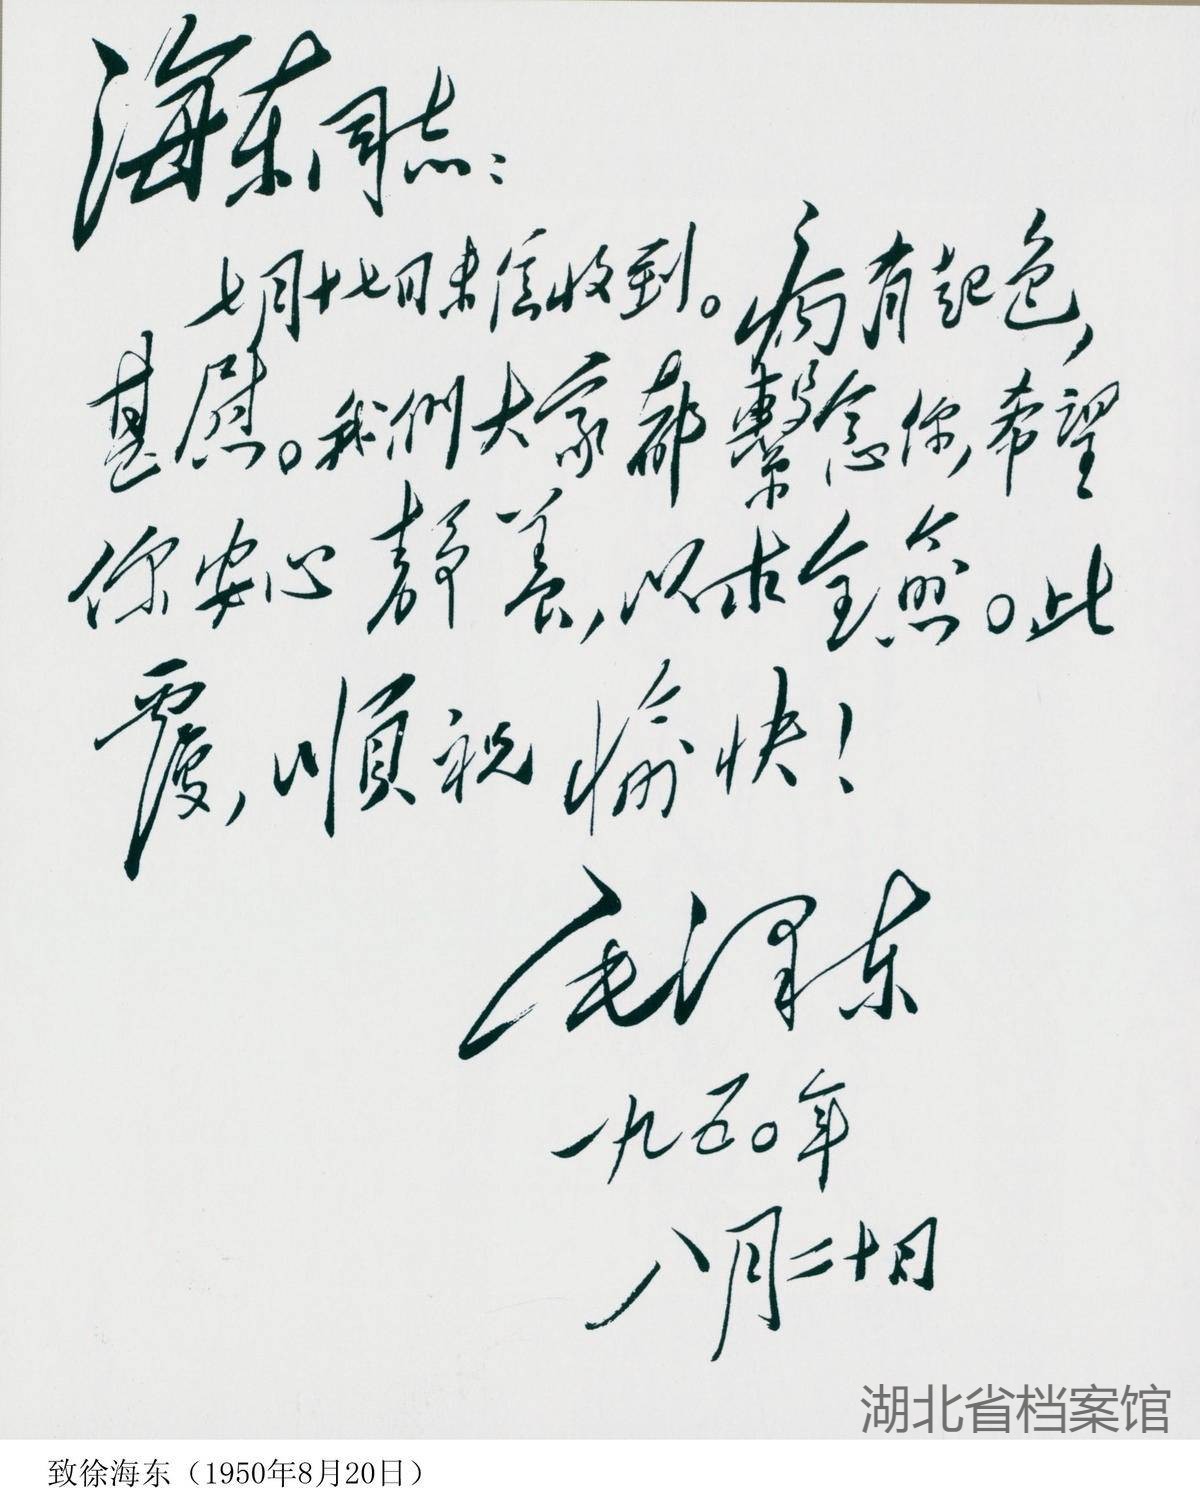 海东同志：
七月十七日来信收到。病有起色，
甚慰。我們大家都繫念你，希望
你安心静養，以求全愈。此
覆，順祝愉快！
毛泽东
一九五〇年
八月二十日
湖北省档案馆
致徐海东（1950年8月20日）